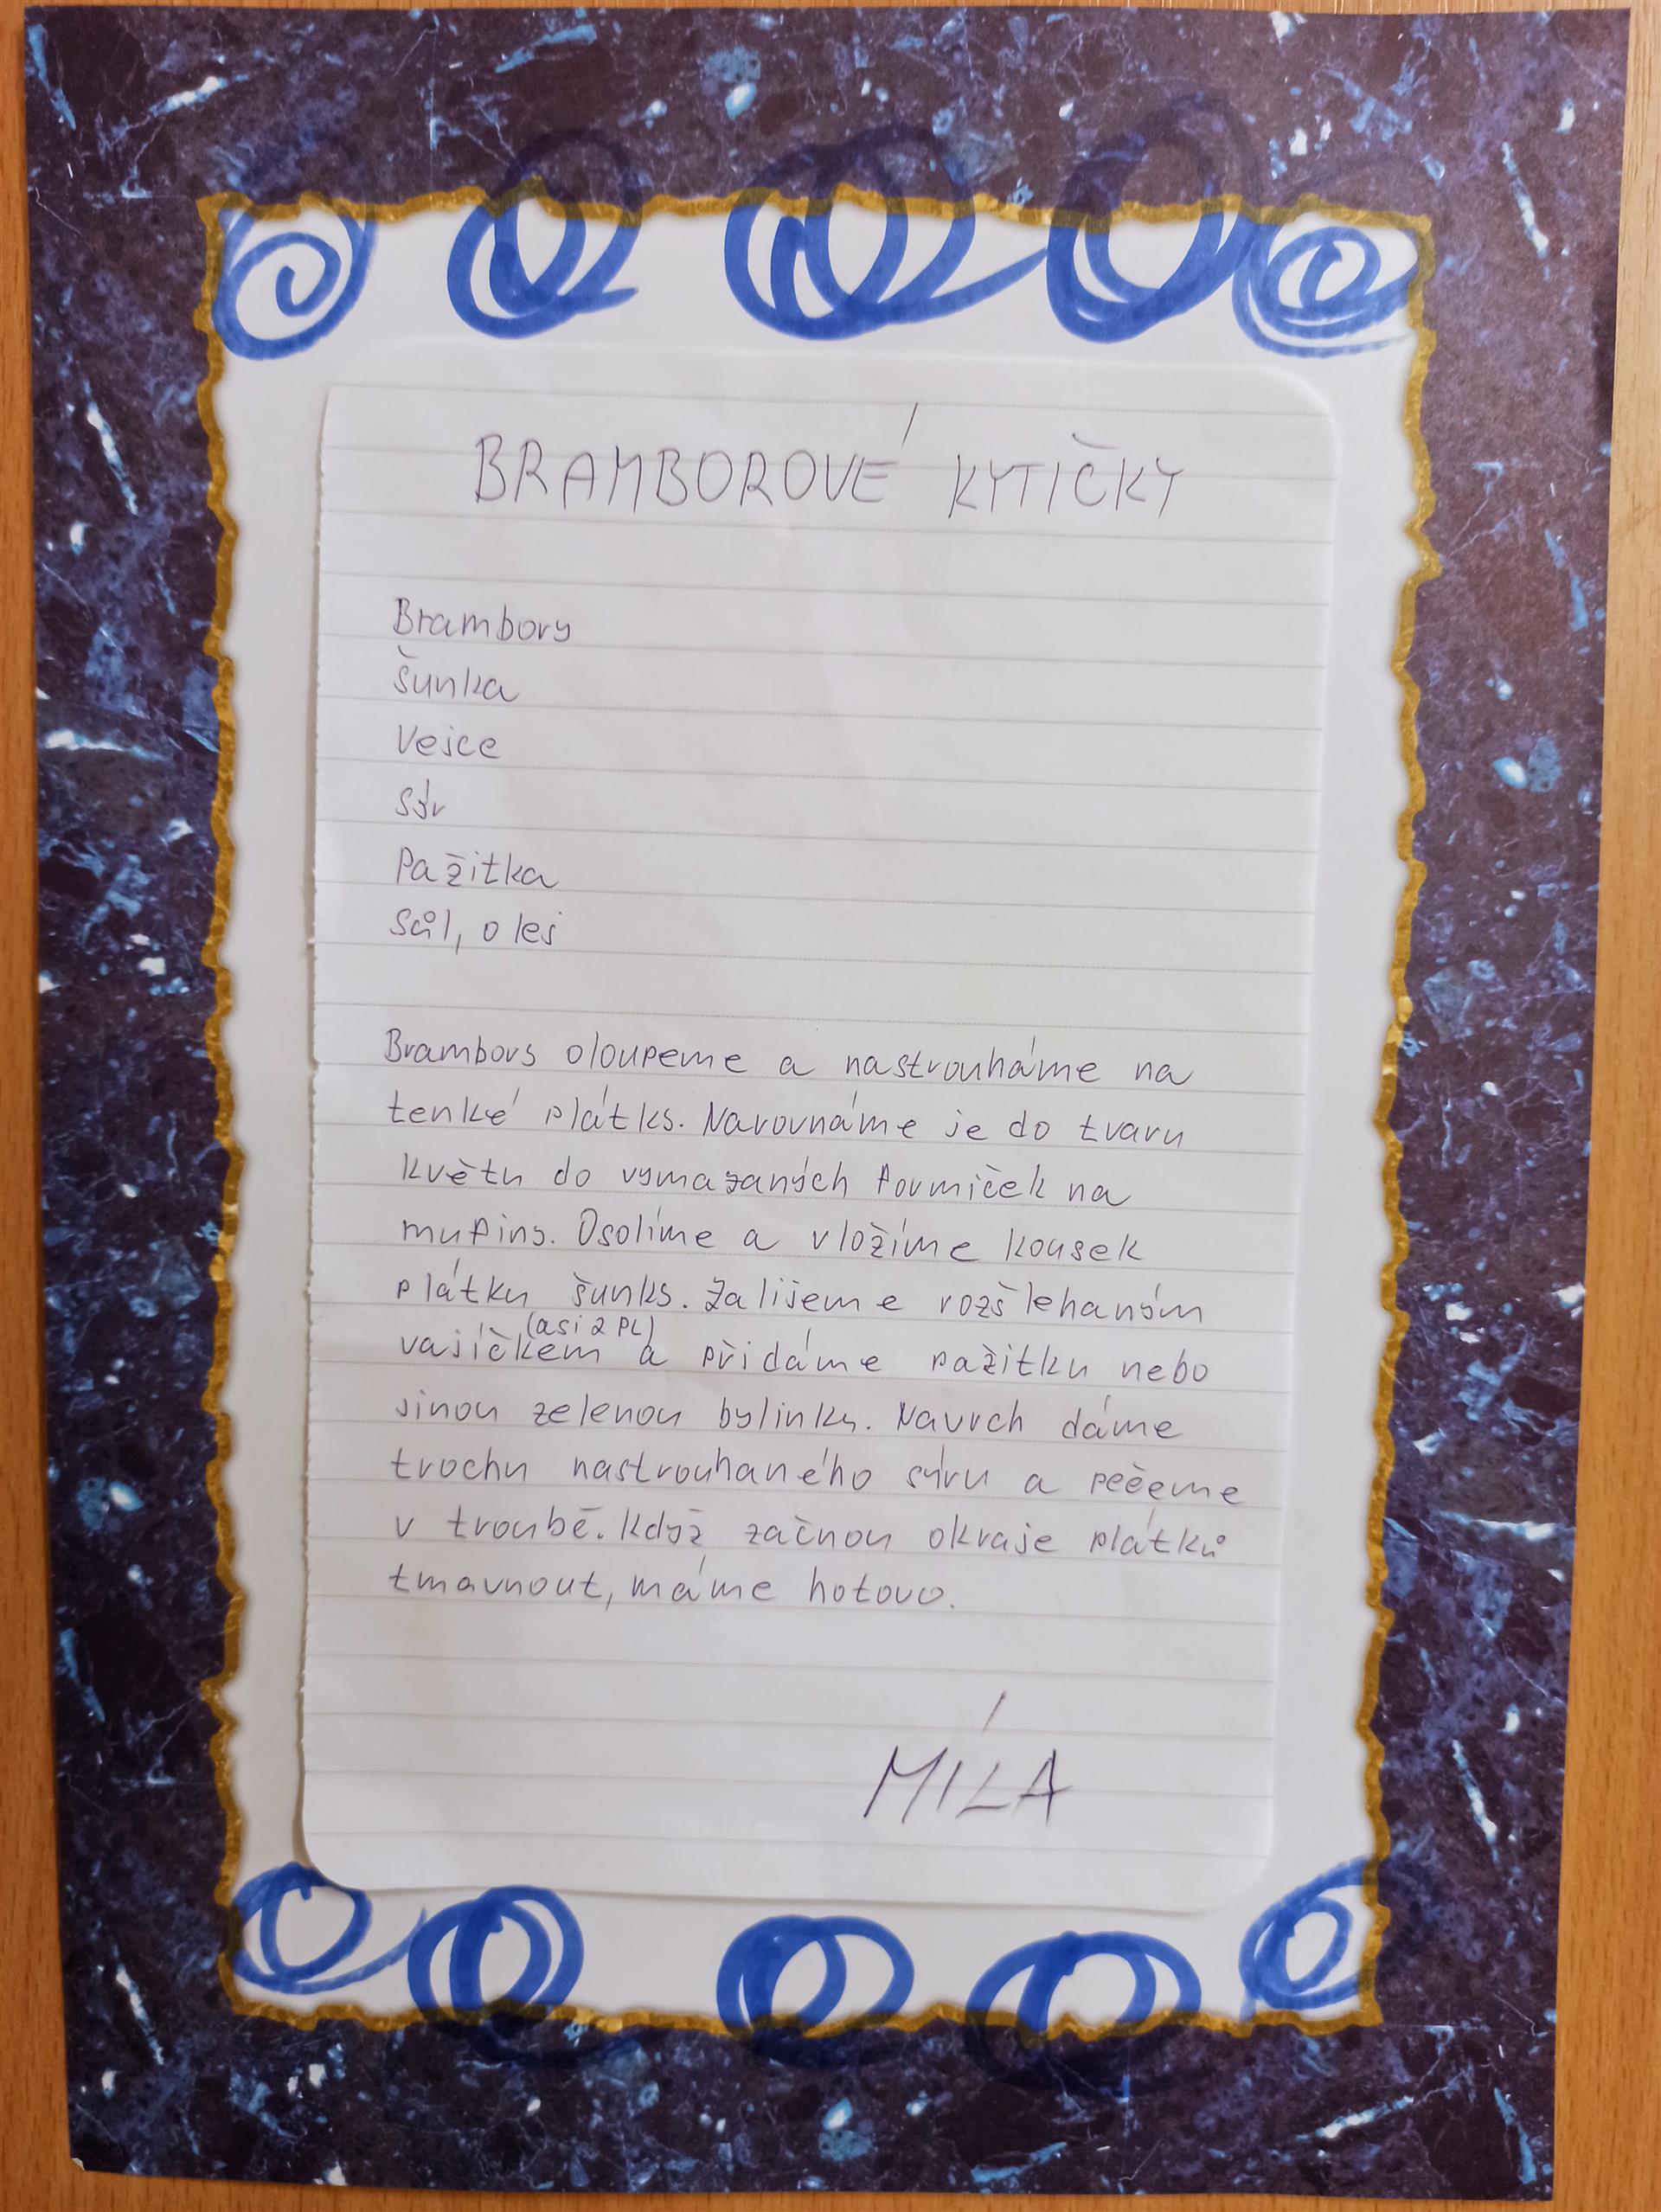 BRAMBOROVÉ KYTIČKY
Brambory
Šunka
Vejce
Sýr
Pažitka
Sůl, olej
Brambory oloupeme a nastrouháme na
tenké plátky. Narovnáme je do tvaru
květu do vymazaných formiček na
mufiny. Osolíme a vložíme kousek
plátku šunky. Zalijeme rozšlehaným
(asi 2 PL)
vajíčkem a přidáme pažitku nebo
jinou zelenou bylinky. Navrch dáme
trochu nastrouhaného sýru a pečeme
v troubě. Když začnou okraje plátků
tmavnout, máme hotovo.
MÍLA